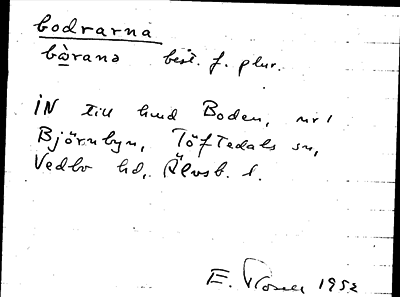 bodrarna
bòrana best. f. plur.
IN till hmd Boden, nr 1
Björnbyn, Töftedals sn,
Vedbo hd, Älvsb. l.
E. 1952